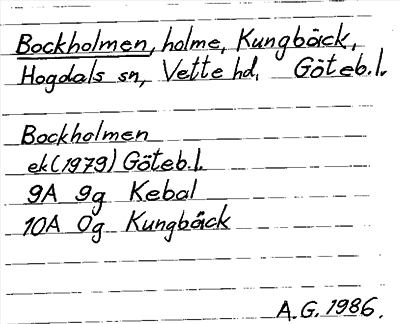 Bockholmen, holme, Kungbäck,
Hogdals sn, Vette hd, Göteb.l.
Bockholmen
ek(1979) Göteb.l.
9A 9g Kebal
10A 0g Kungbäck
A.G. 1986.